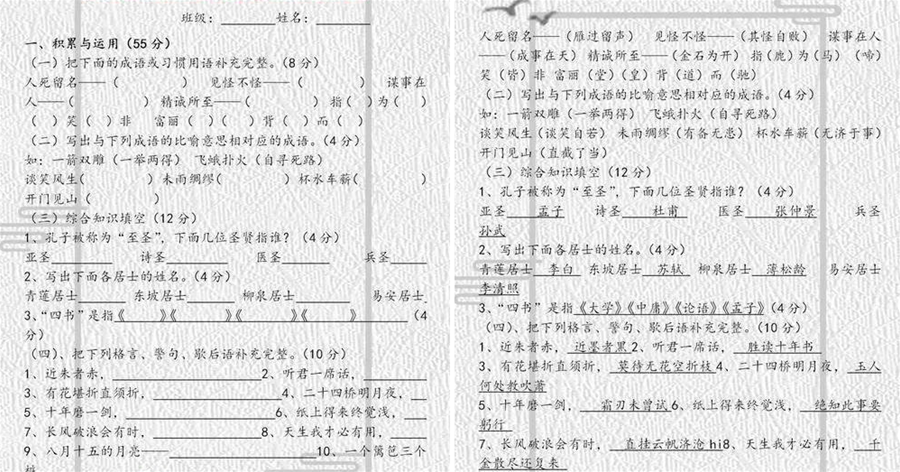 班级：______ 姓名：______
一、积累与运用（55 分）
（一）把下面的成语或习惯用语补充完整。（8 分）
人死留名——（ ） 见怪不怪——（ ） 谋事在
人——（ ） 精诚所至——（ ） 指（ ）为（ ）
（ ）笑（ ）非 富丽（ ）（ ） 背（ ）而（ ）
（二）写出与下列成语的比喻意思相对应的成语。（4 分）
如：一箭双雕（一举两得） 飞蛾扑火（自寻死路）
谈笑风生（ ）未雨绸缪（ ）杯水车薪（ ）
开门见山（ ）
（三）综合知识填空（12 分）
1、孔子被称为“至圣”，下面几位圣贤指谁？（4 分）
亚圣______ 诗圣______ 医圣______ 兵圣____
2、写出下面各居士的姓名。（4 分）
青莲居士______ 东坡居士______ 柳泉居士______ 易安居士
3、“四书”是指《 》《 》《 》《 》______（4
分）
（四）、把下列格言、警句、歇后语补充完整。（10 分）
1、近朱者赤，______2、听君一席话，______
3、有花堪折直须折，______4、二十四桥明月夜，__
5、十年磨一剑，______6、纸上得来终觉浅，__
7、长风破浪会有时，______8、天生我才必有用，____
9、八月十五的月亮——______10、一个篱笆三个
人死留名——（雁过留声） 见怪不怪——（其怪自败） 谋事在人
——（成事在天） 精诚所至——（金石为开） 指（鹿）为（马） （啼）
笑（皆）非 富丽（堂）（皇） 背（道）而（驰）
（二）写出与下列成语的比喻意思相对应的成语。（4 分）
如：一箭双雕（一举两得） 飞蛾扑火（自寻死路）
谈笑风生（谈笑自若） 未雨绸缪（有备无患） 杯水车薪（无济于事）
开门见山（直截了当）
（三）综合知识填空（12 分）
1、孔子被称为“至圣”，下面几位圣贤指谁？（4 分）
亚圣 孟子 诗圣 杜甫 医圣 张仲景 兵圣
孙武
2、写出下面各居士的姓名。（4 分）
青莲居士 李白 东坡居士 苏轼 柳泉居士 薄松龄 易安居士
李清照
3、“四书”是指《大学》《中庸》《论语》《孟子》（4 分）
（四）、把下列格言、警句、歇后语补充完整。（10 分）
1、近朱者赤， 近墨者黑 2、听君一席话， 胜读十年书
3、有花堪折直须折， 莫待无花空折枝 4、二十四桥明月夜， 玉人
何处教吹萧
5、十年磨一剑， 霜刃未曾试 6、纸上得来终觉浅， 绝知此事要
躬行
7、长风破浪会有时， 直挂云帆济沧 hi8、天生我才必有用， 千
金散尽还复来